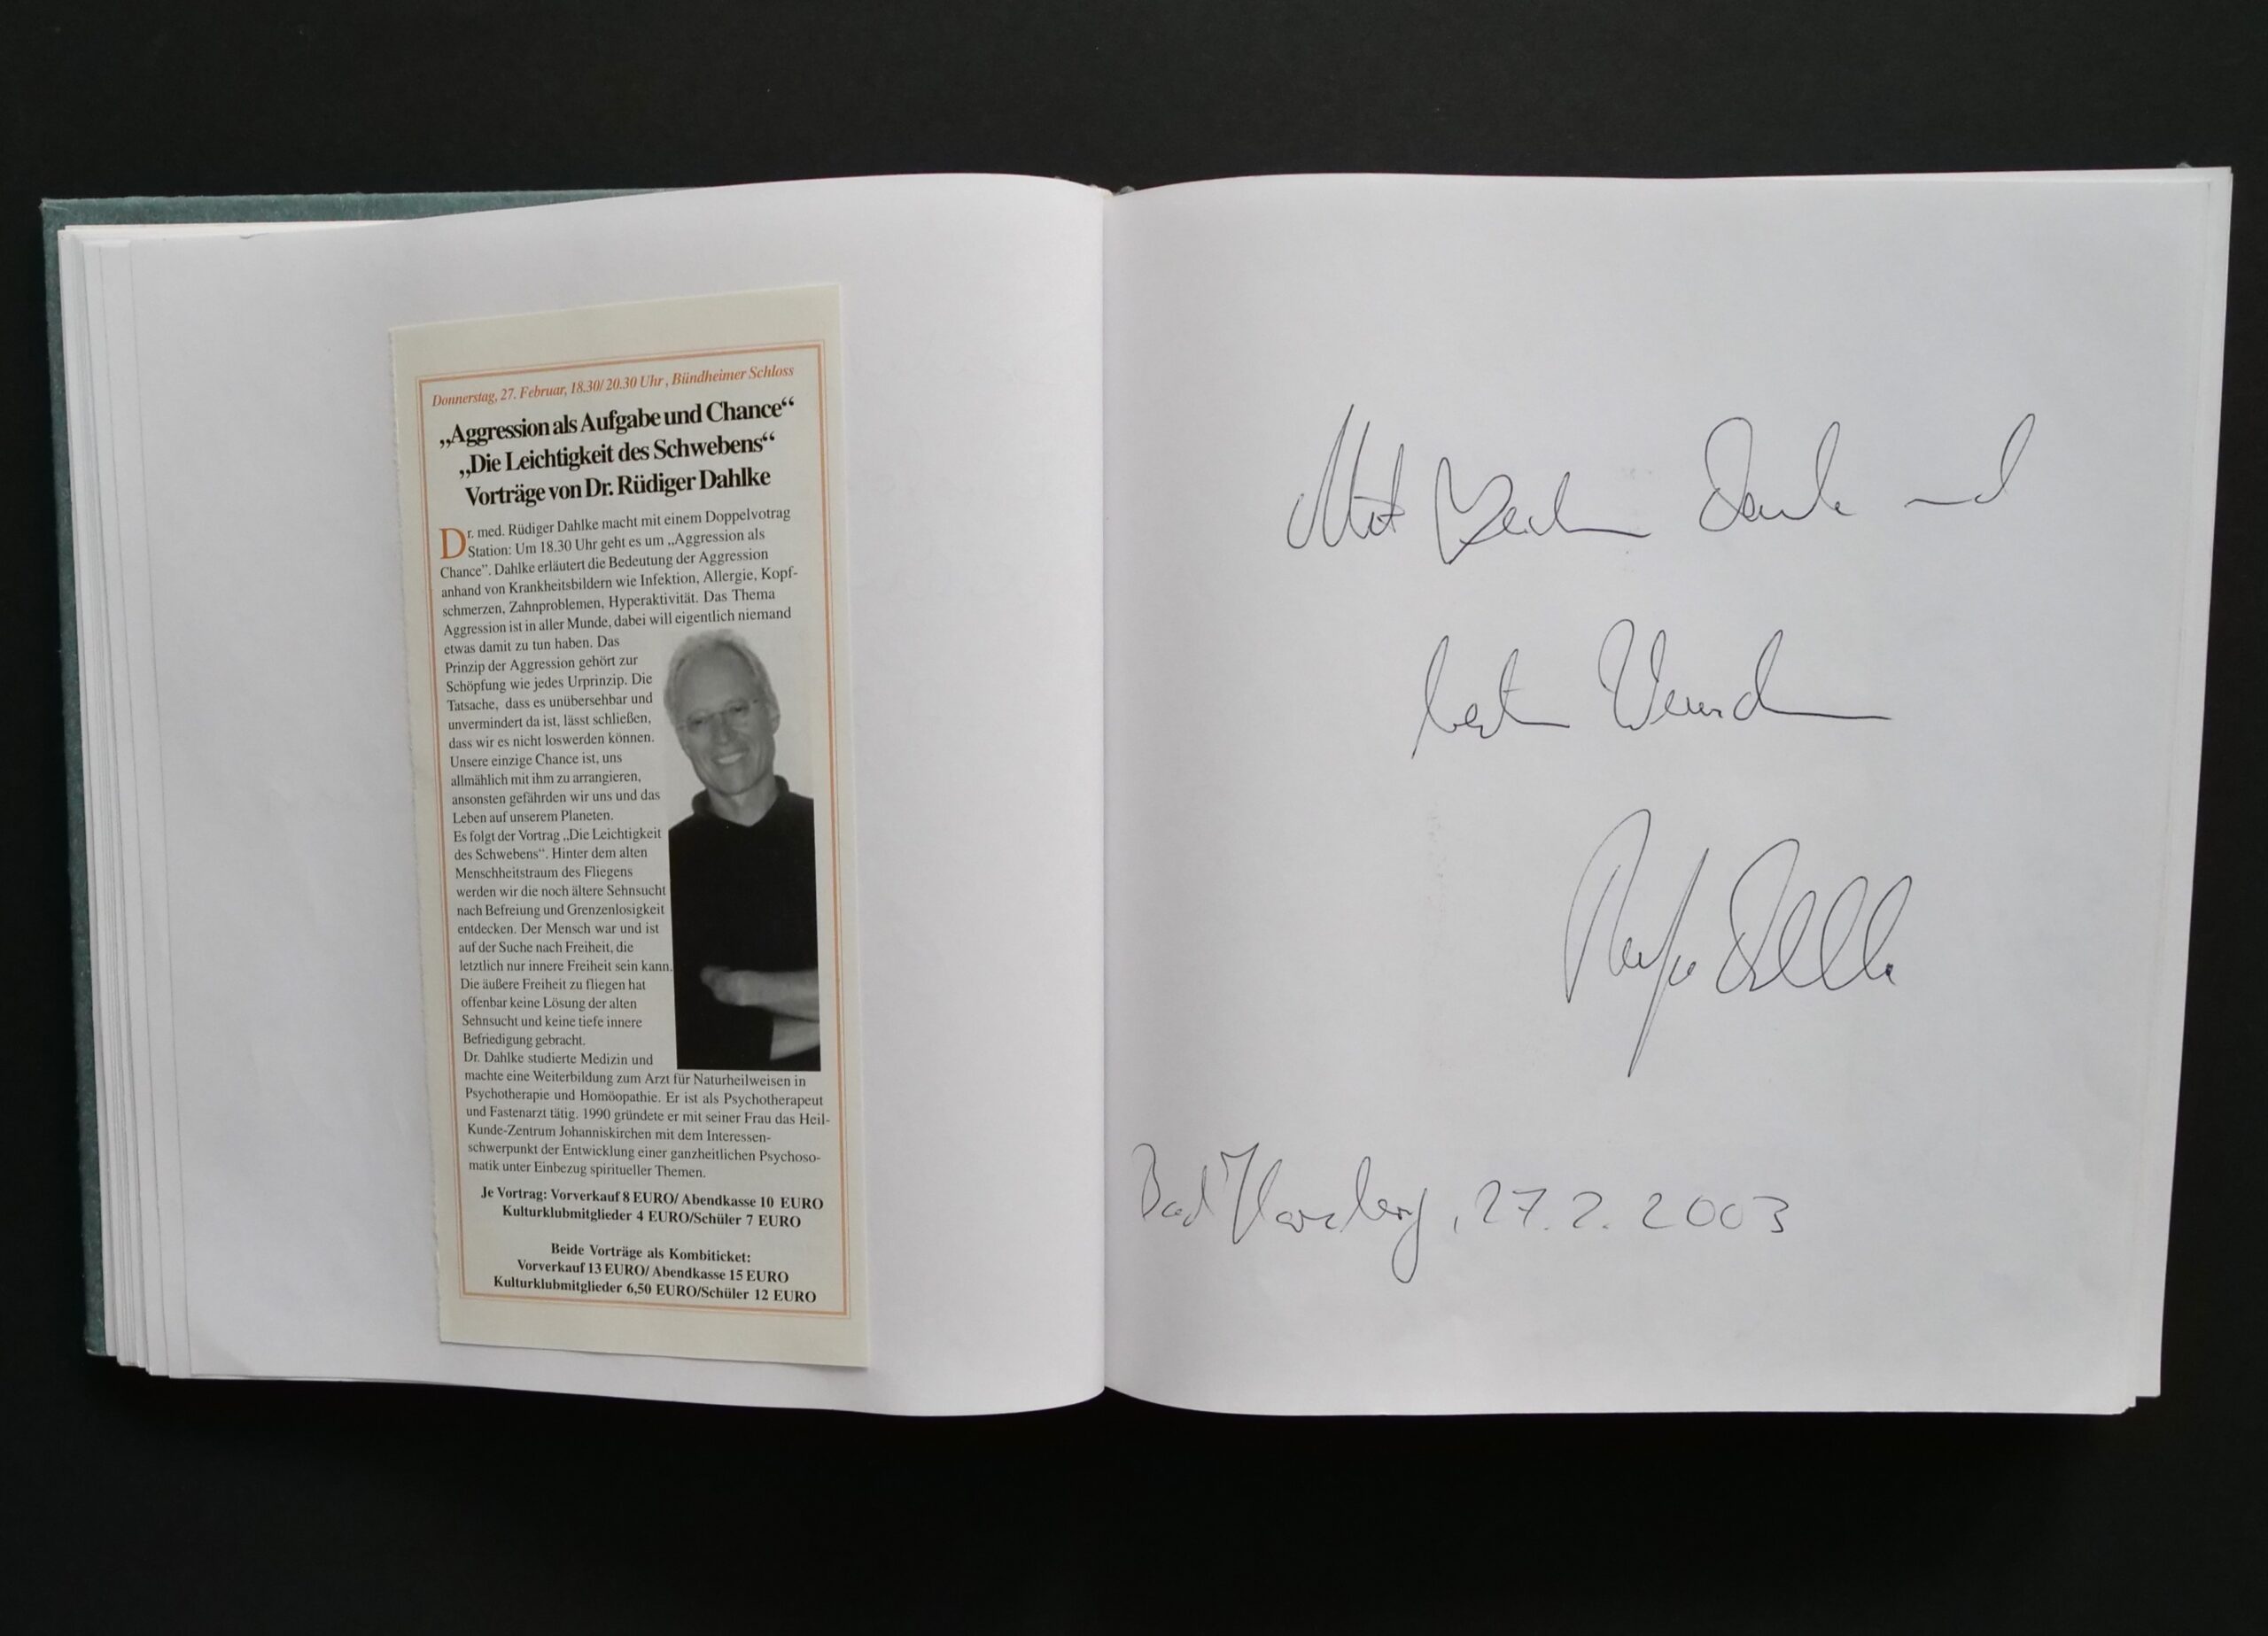 Donnerstag, 27. Februar, 18.30/ 20.30 Uhr , Bündheimer Schloss
„Aggression als Aufgabe und Chance“
„Die Leichtigkeit des Schwebens“
Vorträge von Dr. Rüdiger Dahlke
Dr. med. Rüdiger Dahlke macht mit einem Doppelvotrag
Station: Um 18.30 Uhr geht es um „Aggression als
Chance”. Dahlke erläutert die Bedeutung der Aggression
anhand von Krankheitsbildern wie Infektion, Allergie, Kopf-
schmerzen, Zahnproblemen, Hyperaktivität. Das Thema
Aggression ist in aller Munde, dabei will eigentlich niemand
etwas damit zu tun haben. Das
Prinzip der Aggression gehört zur
Schöpfung wie jedes Urprinzip. Die
Tatsache, dass es unübersehbar und
unvermindert da ist, lässt schließen,
dass wir es nicht loswerden können.
Unsere einzige Chance ist, uns
allmählich mit ihm zu arrangieren,
ansonsten gefährden wir uns und das
Leben auf unserem Planeten.
Es folgt der Vortrag „Die Leichtigkeit
des Schwebens“. Hinter dem alten
Menschheitstraum des Fliegens
werden wir die noch ältere Sehnsucht
nach Befreiung und Grenzenlosigkeit
entdecken. Der Mensch war und ist
auf der Suche nach Freiheit, die
letztlich nur innere Freiheit sein kann.
Die äußere Freiheit zu fliegen hat
offenbar keine Lösung der alten
Sehnsucht und keine tiefe innere
Befriedigung gebracht.
Dr. Dahlke studierte Medizin und
machte eine Weiterbildung zum Arzt für Naturheilweisen in
Psychotherapie und Homöopathie. Er ist als Psychotherapeut
und Fastenarzt tätig. 1990 gründete er mit seiner Frau das Heil-
Kunde-Zentrum Johanniskirchen mit dem Interessen-
schwerpunkt der Entwicklung einer ganzheitlichen Psychoso-
matik unter Einbezug spiritueller Themen.
Je Vortrag: Vorverkauf 8 EURO/ Abendkasse 10 EURO
Kulturklubmitglieder 4 EURO/Schüler 7 EURO
Beide Vorträge als Kombiticket:
Vorverkauf 13 EURO/ Abendkasse 15 EURO
Kulturklubmitglieder 6,50 EURO/Schüler 12 EURO
Mit Dank und
besten Wünschen
Rüdiger Dahlke
Bad Harzburg, 27. 2. 2003